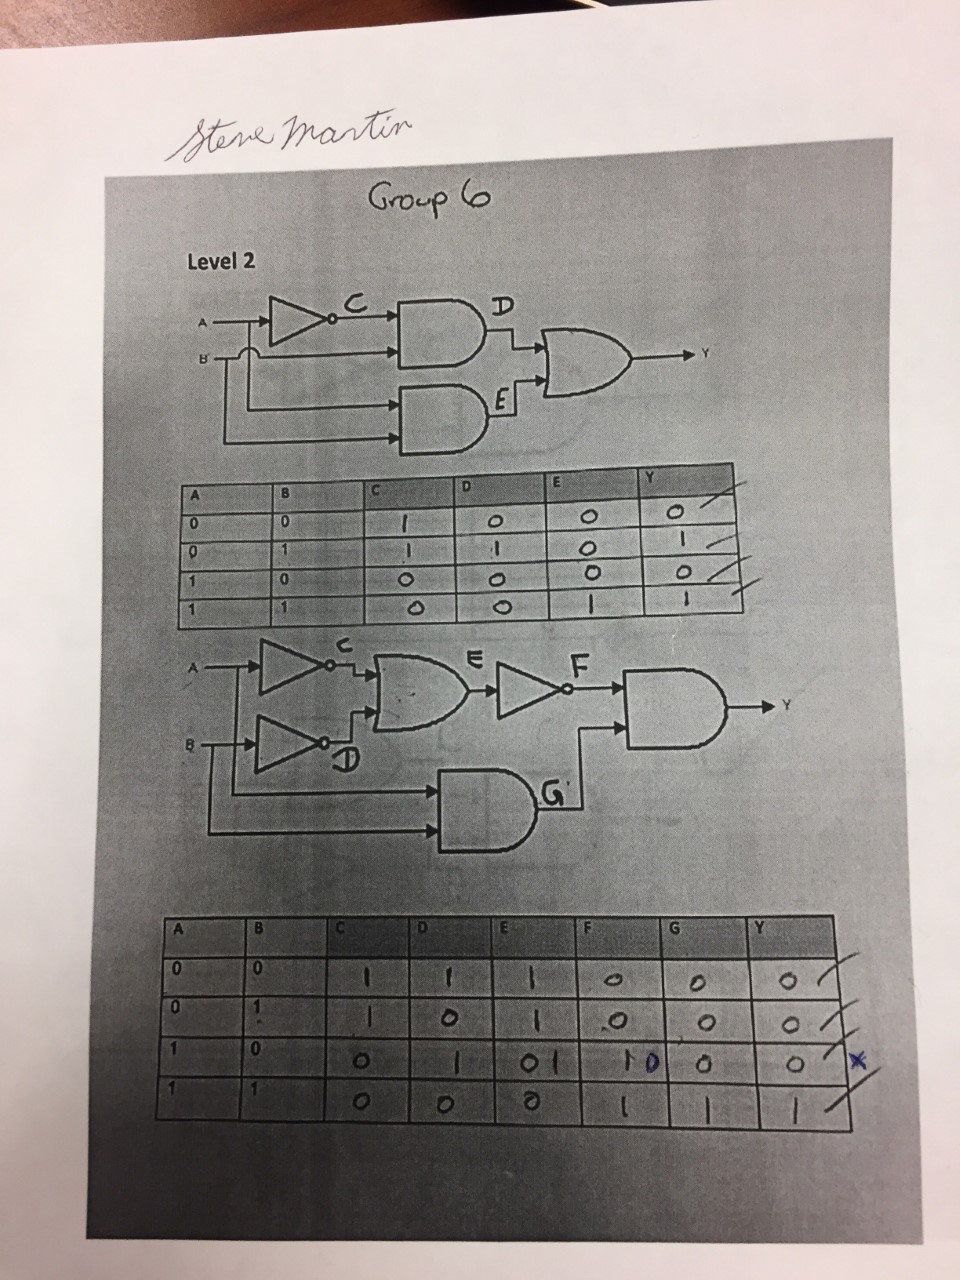 Steve Martin
Group 6
Level 2
C
D
A
B
Y
E
A B C D E Y
0 0 1 0 0 0
0 1 1 1 0 1
1 0 0 0 0 0
1 1 0 0 1 1
C
E
F
A
Y
B
D
G
A B C D E F G Y
0 0 1 1 1 0 0 0
0 1 1 0 1 0 0 0
1 0 0 1 0 1 1 0 0 0 x
1 1 0 0 0 1 1 1